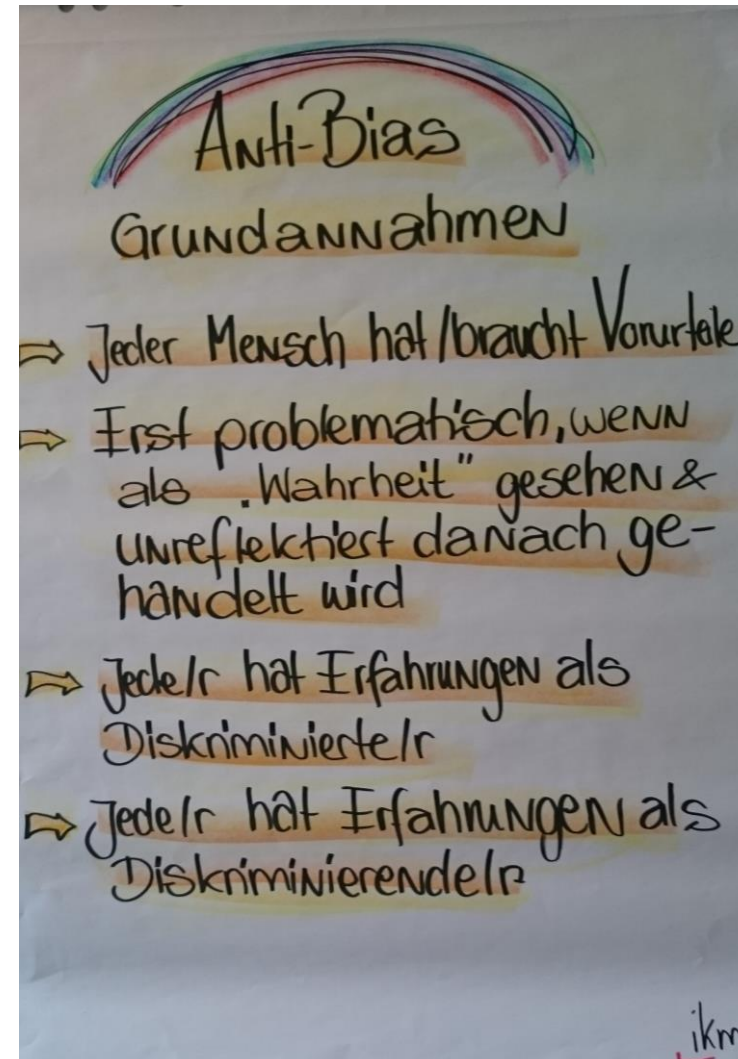 Anti-Bias
Grundannahmen
⇨ Jeder Mensch hat/braucht Vorurteile
⇨ Erst problematisch, wenn
als „Wahrheit" gesehen &
unreflektiert danach ge-
handelt wird
⇨ Jede/r hat Erfahrungen als
Diskriminierte/r
⇨ Jede/r hat Erfahrungen als
Diskriminierende/r
ikm